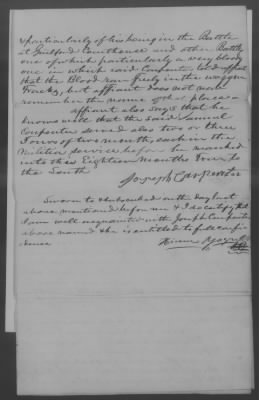 & particularly of his being in the Battle
at Guilford Courthouse and other Battles
one of which particularly a very bloody
one in which said Carpenter said affiant
that the Blood ran freely in the waggon
Tracks, but affiant does not now
remember the name of that place
affiant also says that he
knows well that the said Samuel
Carpenter served also two or three
Tours of two months each in the
Militia service before he marched
into this Eighteen months Tour to
the South
Joseph Carpenter
Sworn to & subscribed on the day last
above mentioned before me & I do certify that
I am well acquainted with Joseph Carpenter
above named & he is entitled to full credence
Hiram